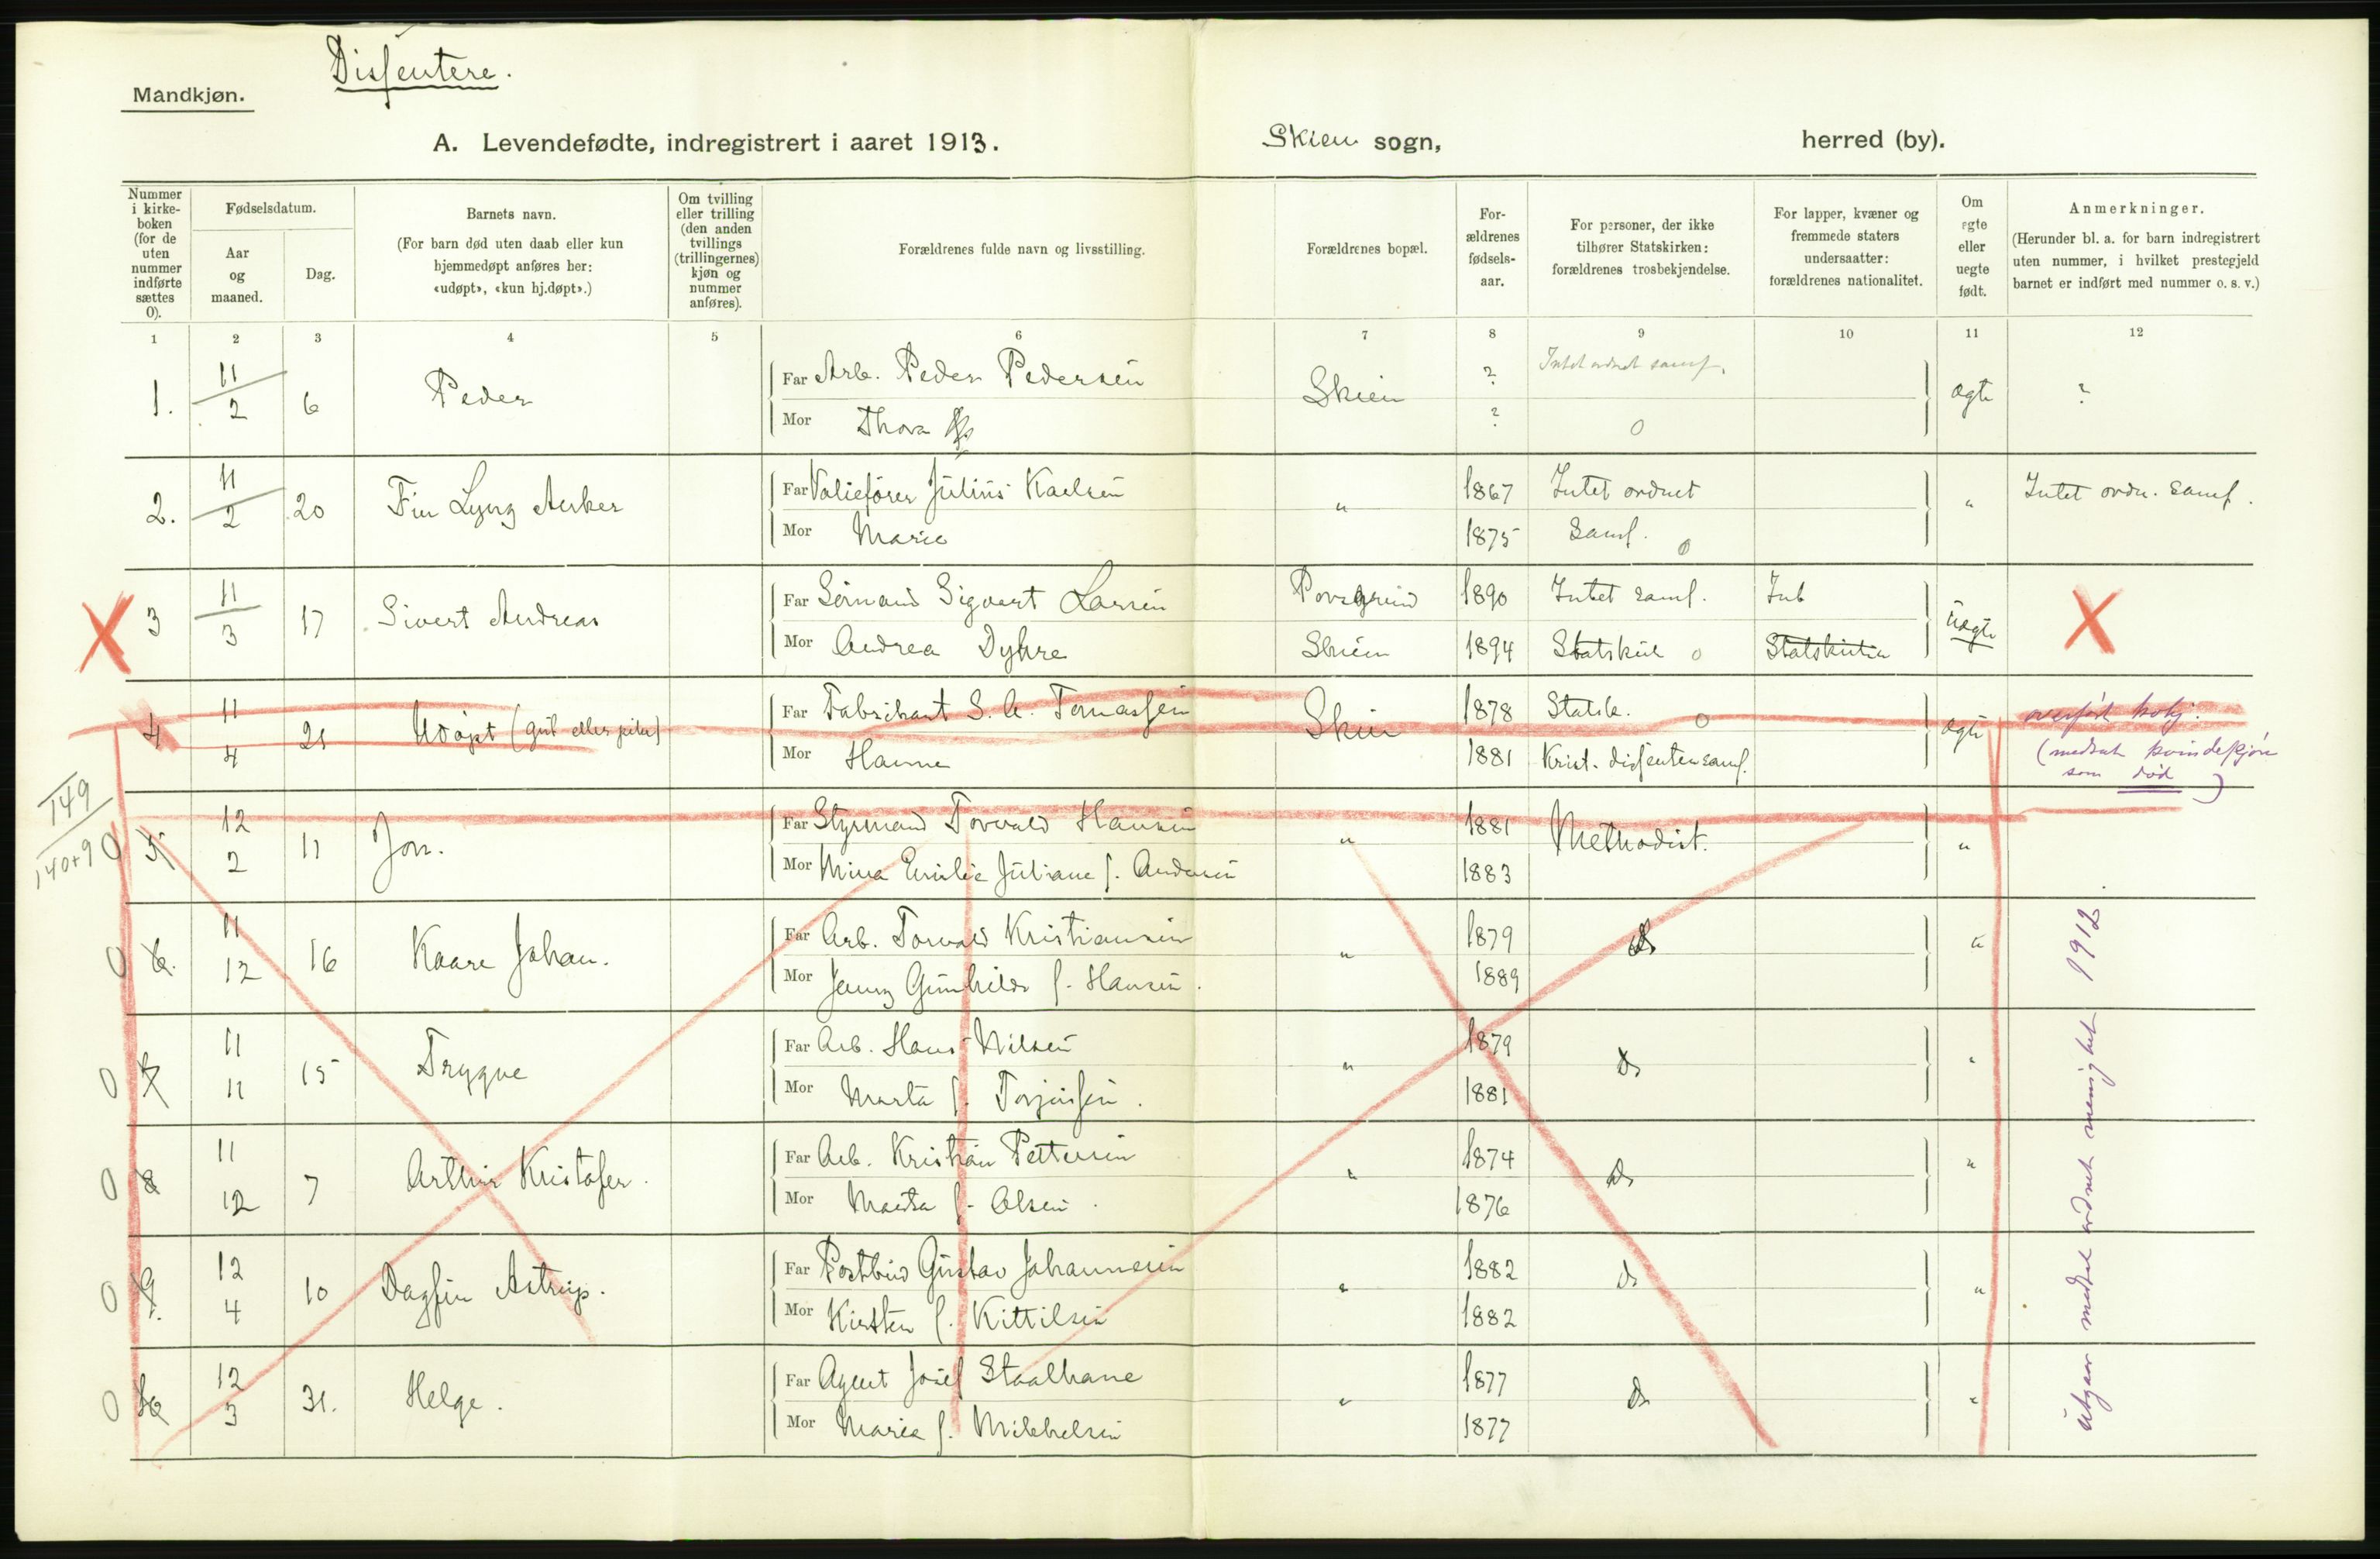 Dissentere.
Mandkjøn.
A. Levendefødte, indregistrert i aaret 1913. Skien sogn, herred (by).
Nummer i kirke-boken (for de uten nummer indførte sættes 0).
Fødselsdatum.
Aar og maaned.
Dag.
Barnets navn.
(For barn død uten daab eller kun hjemmedøpt anføres her: «udøpt», «kun hj.døpt».)
Om tvilling eller trilling (den anden tvillings (trillingernes) kjøn og nummer anføres).
Forældrenes fulde navn og livsstilling.
Forældrenes bopæl.
For-ældrenes fødsels-aar.
For personer, der ikke tilhører Statskirken: forældrenes trosbekjendelse.
For lapper, kvæner og fremmede staters undersaatter: forældrenes nationalitet.
Om egte eller uegte født.
Anmerkninger.
(Herunder bl. a. for barn indregistrert uten nummer, i hvilket prestegjeld barnet er indført med nummer o. s. v.)
1 2 3 4 5 6 7 8 9 10 11 12
1. 11/2 6 Peder Far Arb. Peder Pedersen Skien ? Intet ordnet samf. ægte ?
Mor Thora ? 0
2. 11/2 20 Fin Lyng Anker Far Julius Karlsen " 1867 Intet ordnet " Intet ordn. samf.
Mor Marie 1875 Samf. 0
X 3 11/3 17 Sivert Andreas Far Sømand Sigvart Larsen Porsgrund 1890 Intet samf. Int uægte X
Mor Andrea Dyhre Skien 1894 Statskirk 0 Statskirken
4 11 4 21 Udøpt (gut eller pike) Far Fabrikant S. A. Tomassen Skien 1878 Statsk. 0 ægte overført kvkj.
Mor Hanna 1881 Krist. dissentersamf. (medsat kvindekjøn
som død)
149
140+9
0 5 12 2 11 Jon. Far Styrmand Torvald Hansen " 1881 Methodist. "
Mor Mina Emilie Juliane f. Andersen 1883
0 6. 11 12 16 Kaare Johan. Far Arb. Torvald Kristiansen " 1879 do "
Mor Jenny Gunhilde f. Hansen. 1889
0 7 11 11 15 Trygve Far Arb. Hans Nilsen " 1879 do "
Mor Marta f. Torjusen. 1881
0 8 11 12 7 Arthur Kristofer. Far Arb. Kristian Pettersen " 1874 do "
Mor Marta f. Olsen. 1876
0 9. 12 4 10 Dagfin Astrup. Far Postbud Gustav Johannesen " 1882 do "
Mor Kirsten f. Kittilsen 1882
0 10 12 3 31. Helge. Far Agent Josef Staalhane " 1877 do "
Mor Marie f. Mikkelsen 1877
utgaar medtat ordnet menighet 1912.